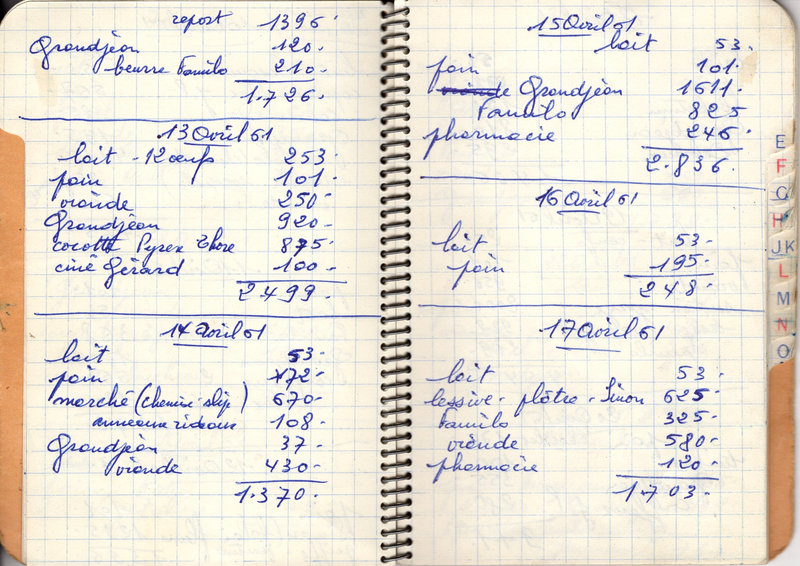 report 1396.
Grandjean 120.
beurre Familo 210.
1.726.
13 Avril 61
lait - 12 oeufs 253.
pain 101.
viande 250.
Grandjean 920.
cocotte Pyrex 875.
ciné Gérard 100.
2499.
14 Avril 61
lait 53.
pain 72.
marché (chemise-slip) 670.
anneaux rideaux 108.
Grandjean 37.
viande 430.
1.370.
15 Avril 61
lait 53.
pain 101.
viande Grandjean 1611.
Familo 825
pharmacie 246.
2.836.
16 Avril 61
lait 53.
pain 195.
248.
17 Avril 61
lait 53.
lessive - plâtre - 625.
Familo 325.
viande 580.
pharmacie 120.
1.703.
E
F
G
H
J K
L
M
N
O